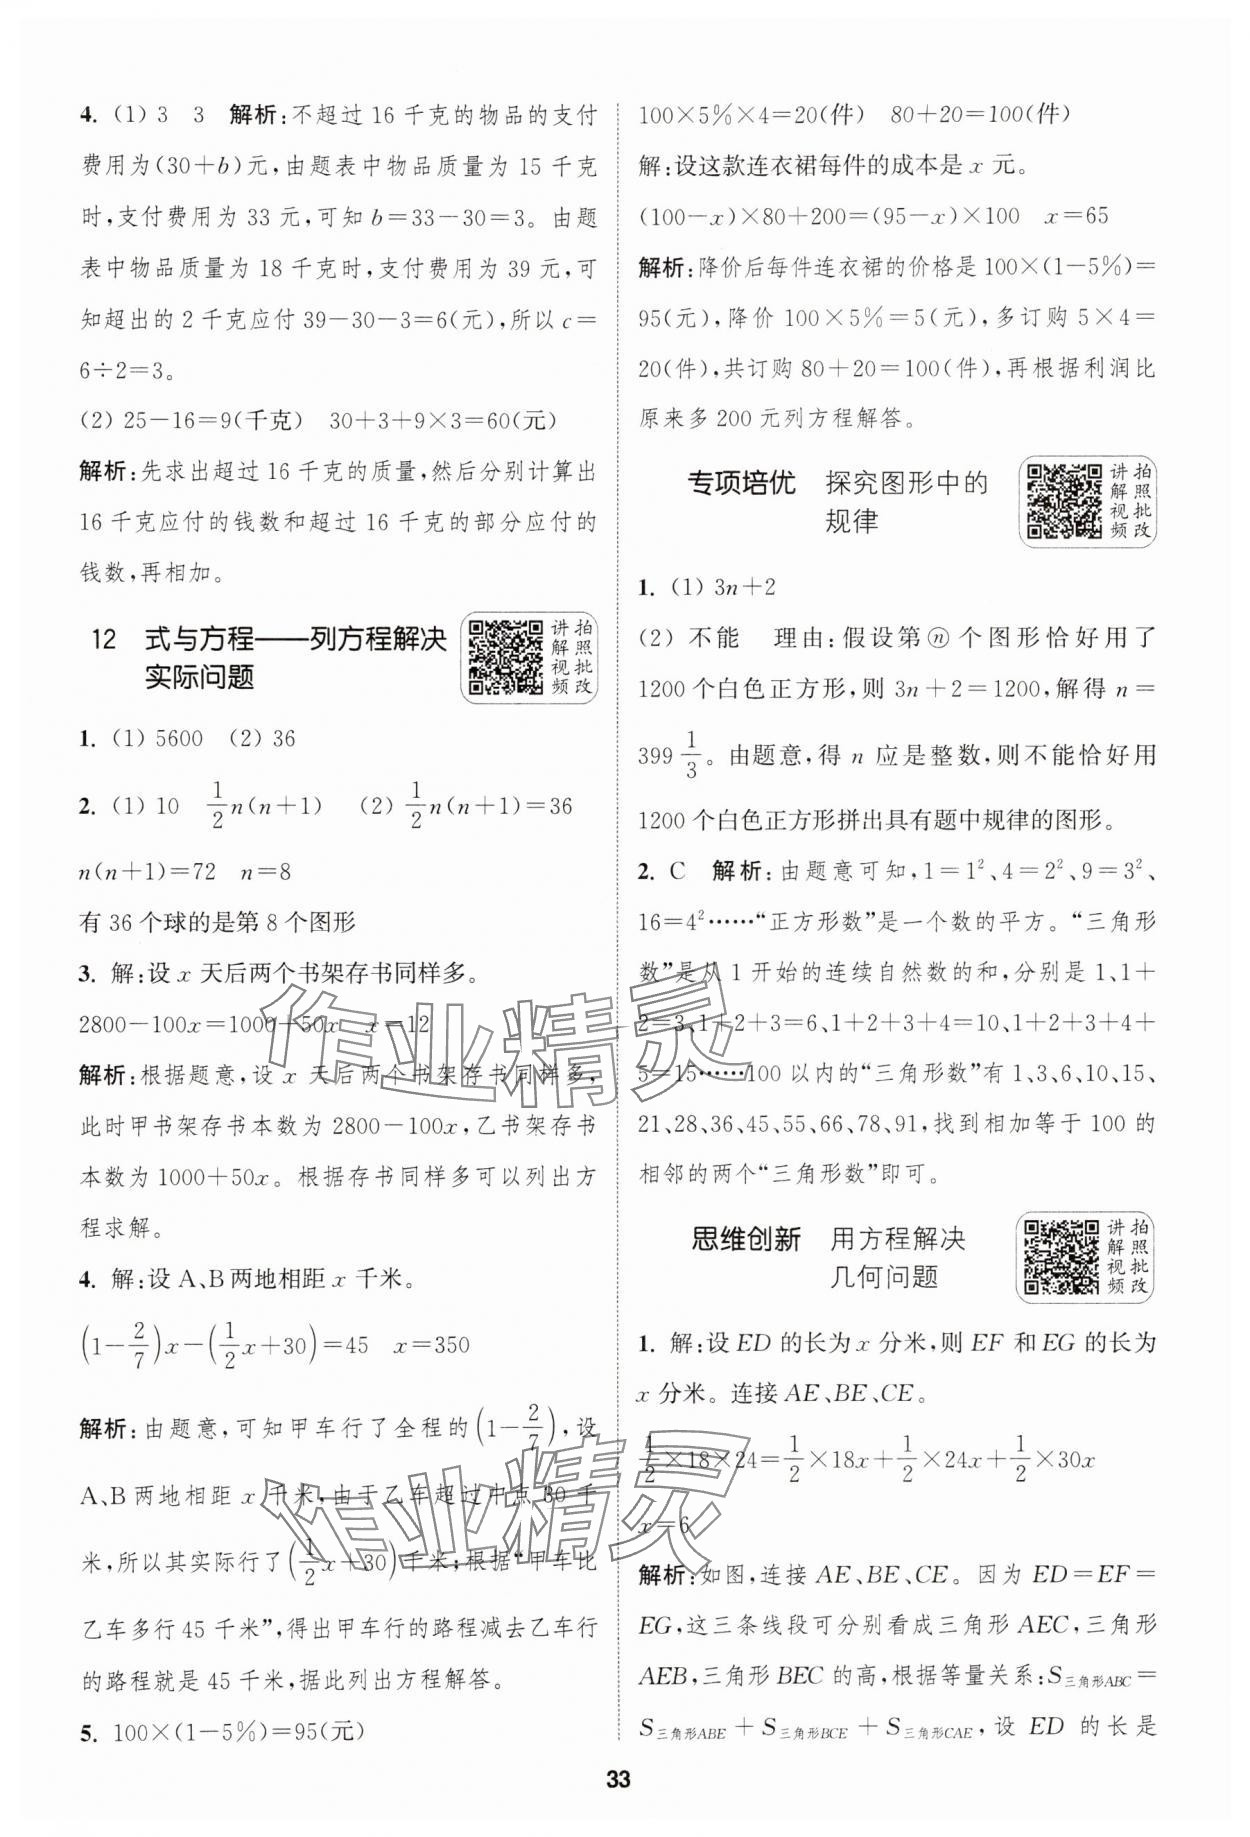 4. (1) 3　3　解析:不超过 16 千克的物品的支付
费用为(30+b)元,由题表中物品质量为 15 千克
时,支付费用为 33 元,可知 b=33-30=3。由题
表中物品质量为 18 千克时,支付费用为 39 元,可
知超出的 2 千克应付 39-30-3=6(元),所以 c=
6÷2=3。
(2) 25-16=9(千克)　30+3+9×3=60(元)
解析:先求出超过 16 千克的质量,然后分别计算出
16 千克应付的钱数和超过 16 千克的部分应付的
钱数,再相加。
12　式与方程——列方程解决
实际问题
讲解视频
拍照批改
1. (1) 5600　(2) 36
2. (1) 10　1/2 n(n+1)　(2) 1/2 n(n+1)=36
n(n+1)=72　n=8
有 36 个球的是第 8 个图形
3. 解:设 x 天后两个书架存书同样多。
2800-100x=1000+50x　x=12
解析:根据题意,设 x 天后两个书架存书同样多,
此时甲书架存书本数为 2800-100x,乙书架存书
本数为 1000+50x。根据存书同样多可以列出方
程求解。
4. 解:设 A、B 两地相距 x 千米。
(1-2/7)x-(1/2 x+30)=45　x=350
解析:由题意,可知甲车行了全程的(1-2/7),设
A、B 两地相距 x 千米,由于乙车超过中点 30 千
米,所以其实际行了(1/2 x+30)千米;根据“甲车比
乙车多行 45 千米”,得出甲车行的路程减去乙车行
的路程就是 45 千米,据此列出方程解答。
5. 100×(1-5%)=95(元)
100×5%×4=20(件)　80+20=100(件)
解:设这款连衣裙每件的成本是 x 元。
(100-x)×80+200=(95-x)×100　x=65
解析:降价后每件连衣裙的价格是 100×(1-5%)=
95(元),降价 100×5%=5(元),多订购 5×4=
20(件),共订购 80+20=100(件),再根据利润比
原来多 200 元列方程解答。
专项培优　探究图形中的
规律
讲解视频
拍照批改
1. (1) 3n+2
(2) 不能　理由:假设第ⓝ个图形恰好用了
1200 个白色正方形,则 3n+2=1200,解得 n=
399 1/3。由题意,得 n 应是整数,则不能恰好用
1200 个白色正方形拼出具有题中规律的图形。
2. C　解析:由题意可知,1=1²、4=2²、9=3²、
16=4²……“正方形数”是一个数的平方。“三角形
数”是从 1 开始的连续自然数的和,分别是 1、1+
2=3、1+2+3=6、1+2+3+4=10、1+2+3+4+
5=15……100 以内的“三角形数”有 1、3、6、10、15、
21、28、36、45、55、66、78、91,找到相加等于 100 的
相邻的两个“三角形数”即可。
思维创新　用方程解决
几何问题
讲解视频
拍照批改
1. 解:设 ED 的长为 x 分米,则 EF 和 EG 的长为
x 分米。连接 AE、BE、CE。
1/2×18×24=1/2×18x+1/2×24x+1/2×30x
x=6
解析:如图,连接 AE、BE、CE。因为 ED=EF=
EG,这三条线段可分别看成三角形 AEC,三角形
AEB,三角形 BEC 的高,根据等量关系:S三角形ABC=
S三角形ABE+S三角形BCE+S三角形CAE,设 ED 的长是
33
作业精灵
作业精灵